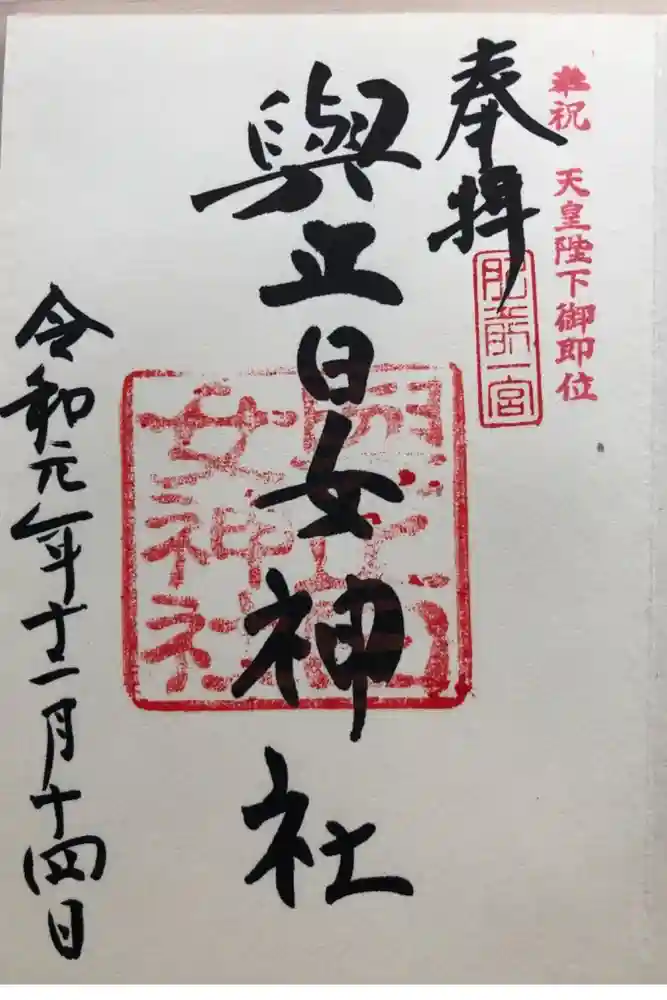 奉祝 天皇陛下御即位
奉拝
肥前一宮
與止日女神社
令和元年十二月十四日